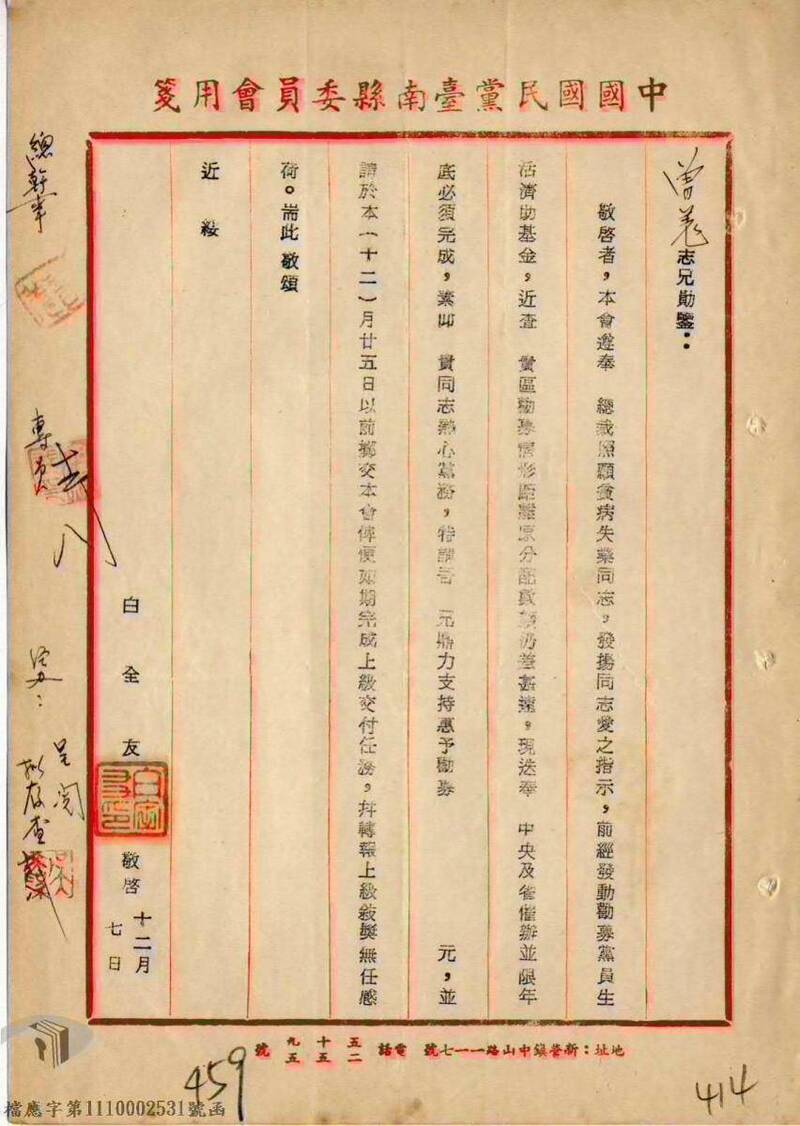 中國國民黨臺南縣委員會用箋
曾義志兄勛鑒：
敬啓者，本會遵奉　總裁照顧貧病失業同志，發揚同志愛之指示，前經發動勸募黨員生
活濟助基金，近查　貴區勸募情形距離原分配數額仍差甚遠，現迭奉　中央及省催辦並限年
底必須完成，素仰　貴同志熱心黨務，特請吾　兄鼎力支持惠予勸募　　元，並
請於本（十二）月廿五日以前擲交本會俾便如期完成上級交付任務，并轉報上級敍獎無任感
荷。耑此 敬頌
近　綏
白全友
敬啓
十二月
七日
總幹事
專員
呈閱
拟存查
地址：新營鎮中山路一一七號　電話　五二　十五　九五　號
459
414
檔應字第1110002531號函